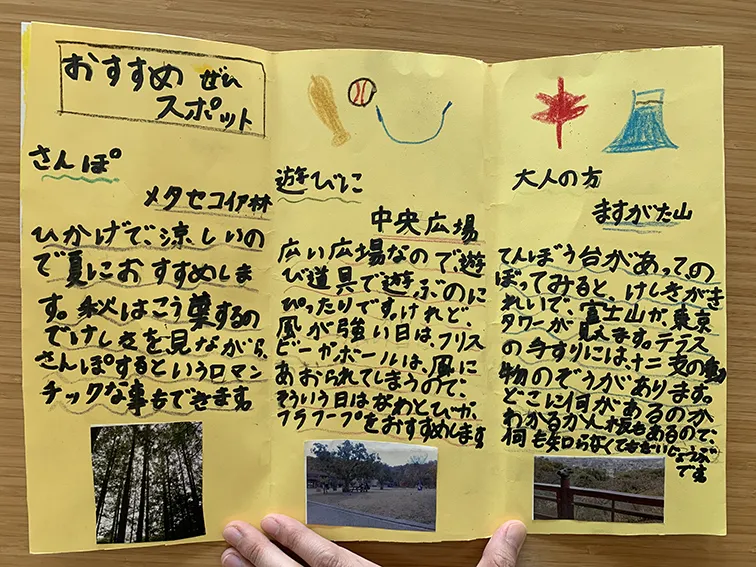 おすすめ ぜひ
スポット
さんぽ
メタセコイア林
ひかげで、涼しいの
で夏におすすめしま
す。秋はこう葉するの
でけしきを見ながら、
さんぽするというロマン
チックな事もできます。
遊びに
中央広場
広い広場なので、遊
び道具で遊ぶのに
ぴったりです。けれど、
風が強い日は、フリス
ビーやボールは、風に
あおられてしまうので、
そういう日はなわとびか、
フラフープをおすすめします
大人の方
ますがた山
てんぼう台があっての
ぼってみると、けしきがき
れいで、富士山か、東京
タワーが見えます。テラス
の手すりには、十二支の動
物のぞうがあります。
どこに何があるのか
わかるかん板もあるので、
何も知らなくても
です